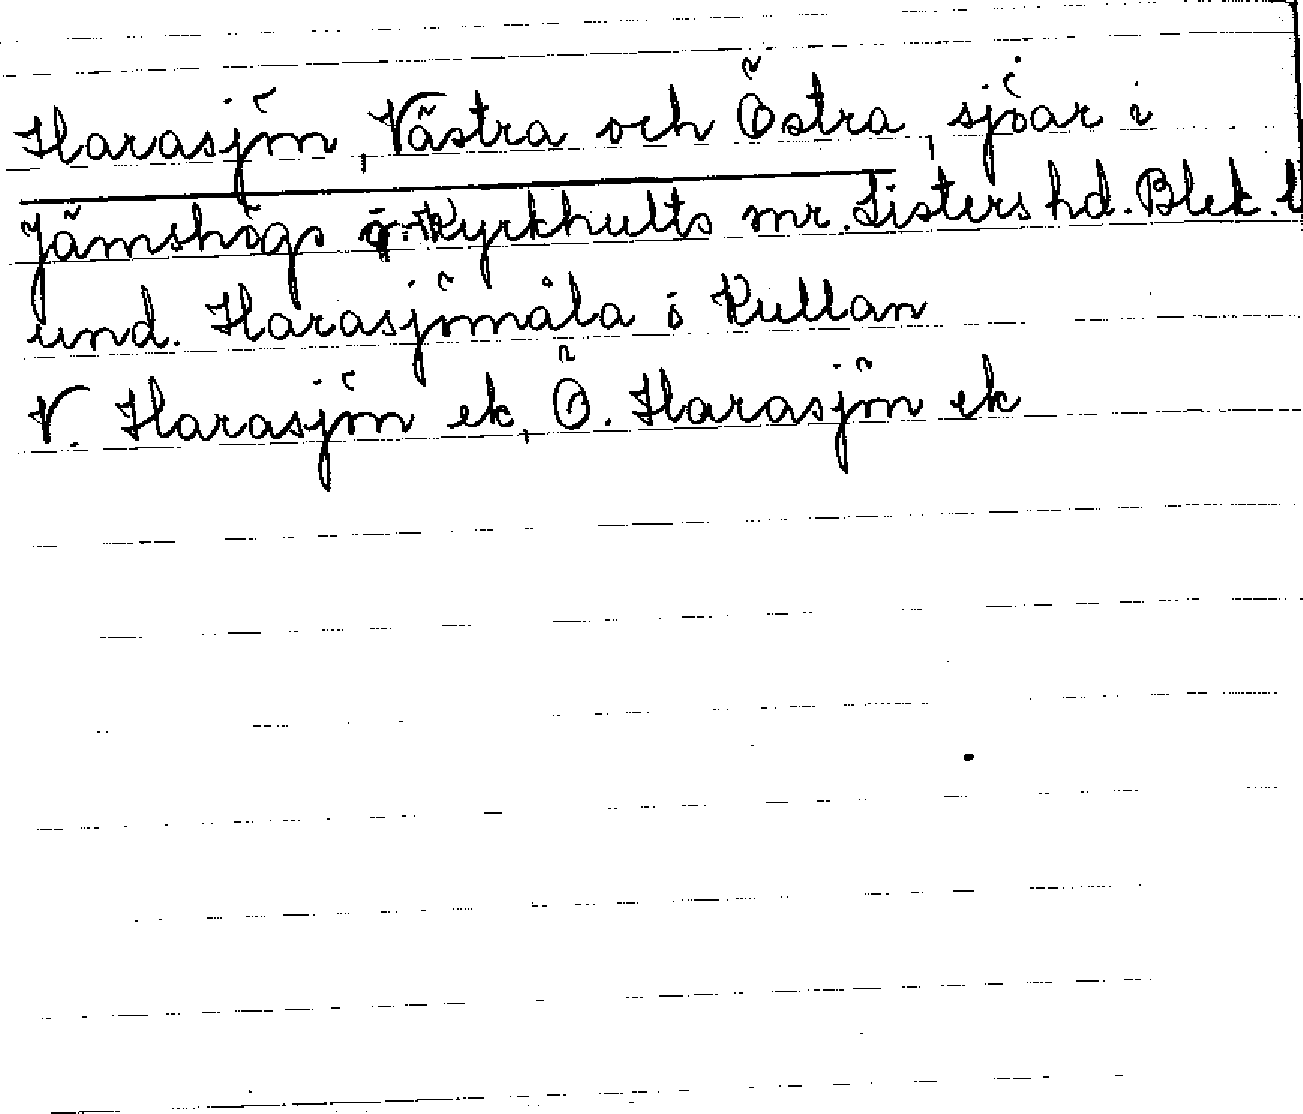 Harasjön, Västra och Östra, sjöar i
Jämshögs o. Kyrkhults mr. Listers hd. Blek. l
und. Harasjömåla ö Kullan
V. Harasjön ek, Ö. Harasjön ek